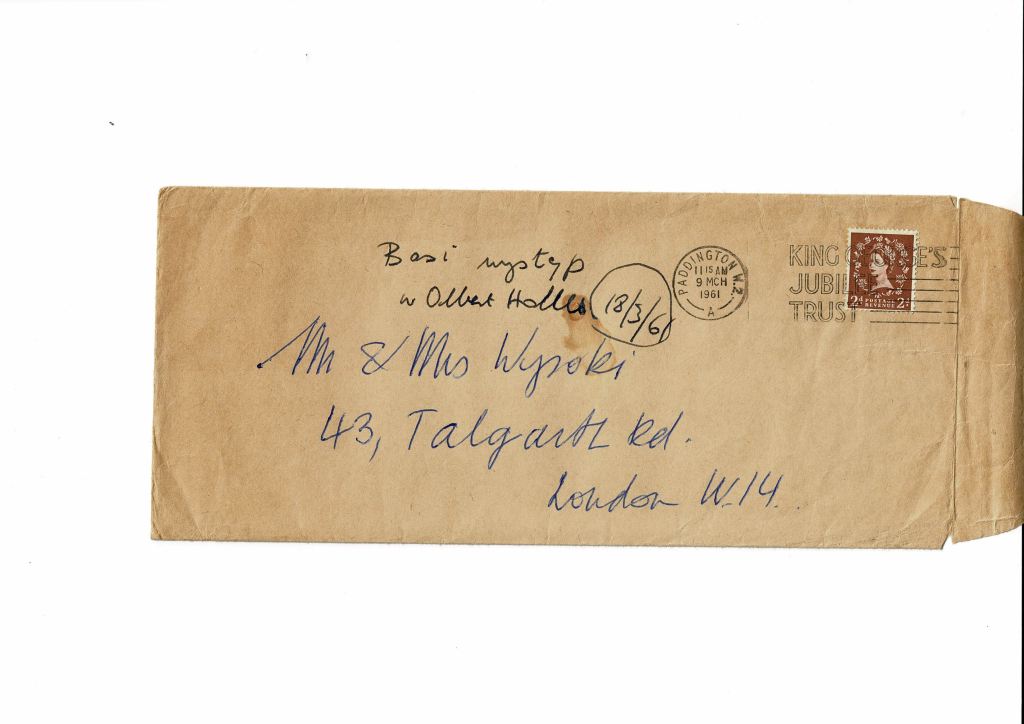 Basi występ
w Olbert Hollu 18/3/61
PADDINGTON W.2.
11 15 AM
9 MCH
1961
A
KING GEORGE'S
JUBILEE
TRUST
2D POSTAGE REVENUE 2D
Mr & Mrs Wysoki
43, Talgarth Rd.
London W.14.